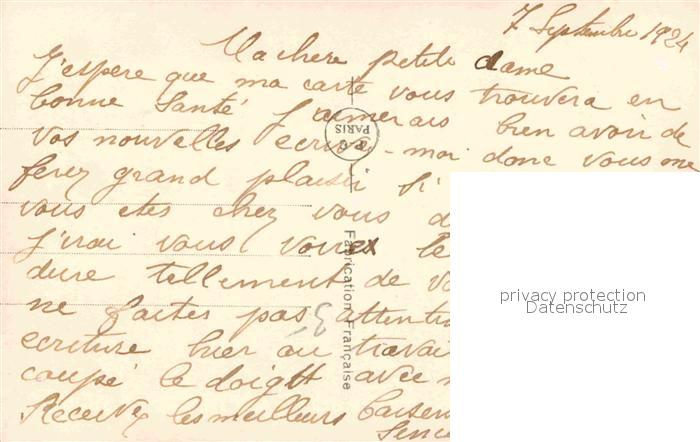 7 Septembre 1924
Ma chere petite dame
J'espere que ma carte vous trouvera en
bonne santé J'aimerais bien avoir de
vos nouvelles ecrivez-moi donc vous me
ferez grand plaisir Si
vous etes chez vous d
J'irai vous voir le
dure tellement de vo
ne faites pas attenti
ecriture hier au travai
coupé le doigt avec
Recevez les meilleurs baisers
PARIS
Fabrication Française
privacy protection
Datenschutz